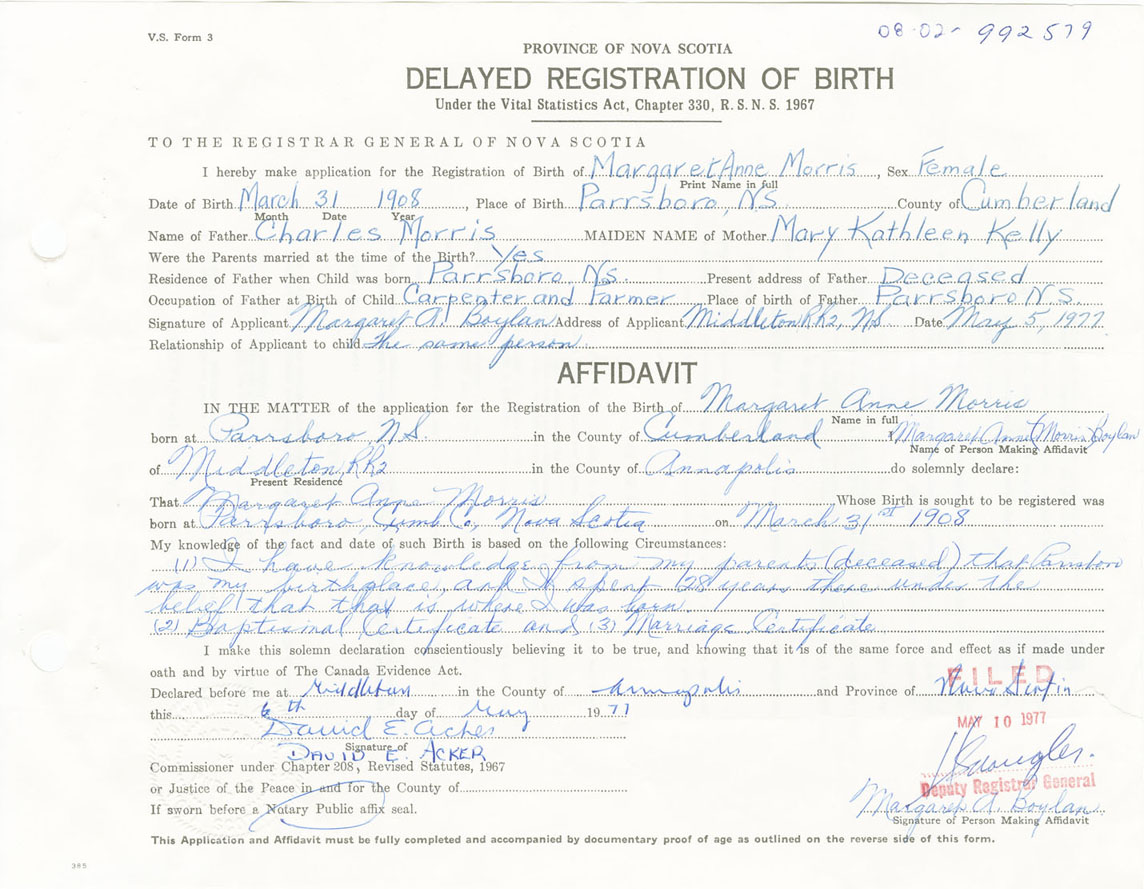 V.S. Form 3
08-02- 992579
PROVINCE OF NOVA SCOTIA
DELAYED REGISTRATION OF BIRTH
Under the Vital Statistics Act, Chapter 330, R. S. N. S. 1967
TO THE REGISTRAR GENERAL OF NOVA SCOTIA
I hereby make application for the Registration of Birth of Margaret Anne Morris, Sex Female
Print Name in full
Date of Birth March 31 1908, Place of Birth Parrsboro, NS. County of Cumberland
Month Date Year
Name of Father Charles Morris MAIDEN NAME of Mother Mary Kathleen Kelly
Were the Parents married at the time of the Birth? Yes
Residence of Father when Child was born Parrsboro, Ns. Present address of Father Deceased
Occupation of Father at Birth of Child Carpenter and Farmer Place of birth of Father Parrsboro N.S.
Signature of Applicant Margaret A. Boylan Address of Applicant Middleton, RR2, NS Date May 5, 1977
Relationship of Applicant to child the same person
AFFIDAVIT
IN THE MATTER of the application for the Registration of the Birth of Margaret Anne Morris
Name in full
born at Parrsboro, N.S. in the County of Cumberland I Margaret Anne (Morris) Boylan
Name of Person Making Affidavit
of Middleton, RR2 in the County of Annapolis do solemnly declare:
Present Residence
That Margaret Anne Morris Whose Birth is sought to be registered was
born at Parrsboro, Cumb. Co., Nova Scotia on March 31st 1908
My knowledge of the fact and date of such Birth is based on the following Circumstances:
(1) I have knowledge from my parents (deceased) that Parrsboro
was my birthplace, and I spent 28 years there under the
belief that that is where I was born.
(2) Baptismal Certificate and (3) Marriage Certificate
I make this solemn declaration conscientiously believing it to be true, and knowing that it is of the same force and effect as if made under
oath and by virtue of The Canada Evidence Act.
FILED
Declared before me at Middleton in the County of Annapolis and Province of Nova Scotia
this 6th day of May 1977
MAY 10 1977
David E. Acker
Signature of
DAVID E. ACKER
Commissioner under Chapter 208, Revised Statutes, 1967
Deputy Registrar General
or Justice of the Peace in and for the County of
Margaret A. Boylan
If sworn before a Notary Public affix seal.
Signature of Person Making Affidavit
This Application and Affidavit must be fully completed and accompanied by documentary proof of age as outlined on the reverse side of this form.
385